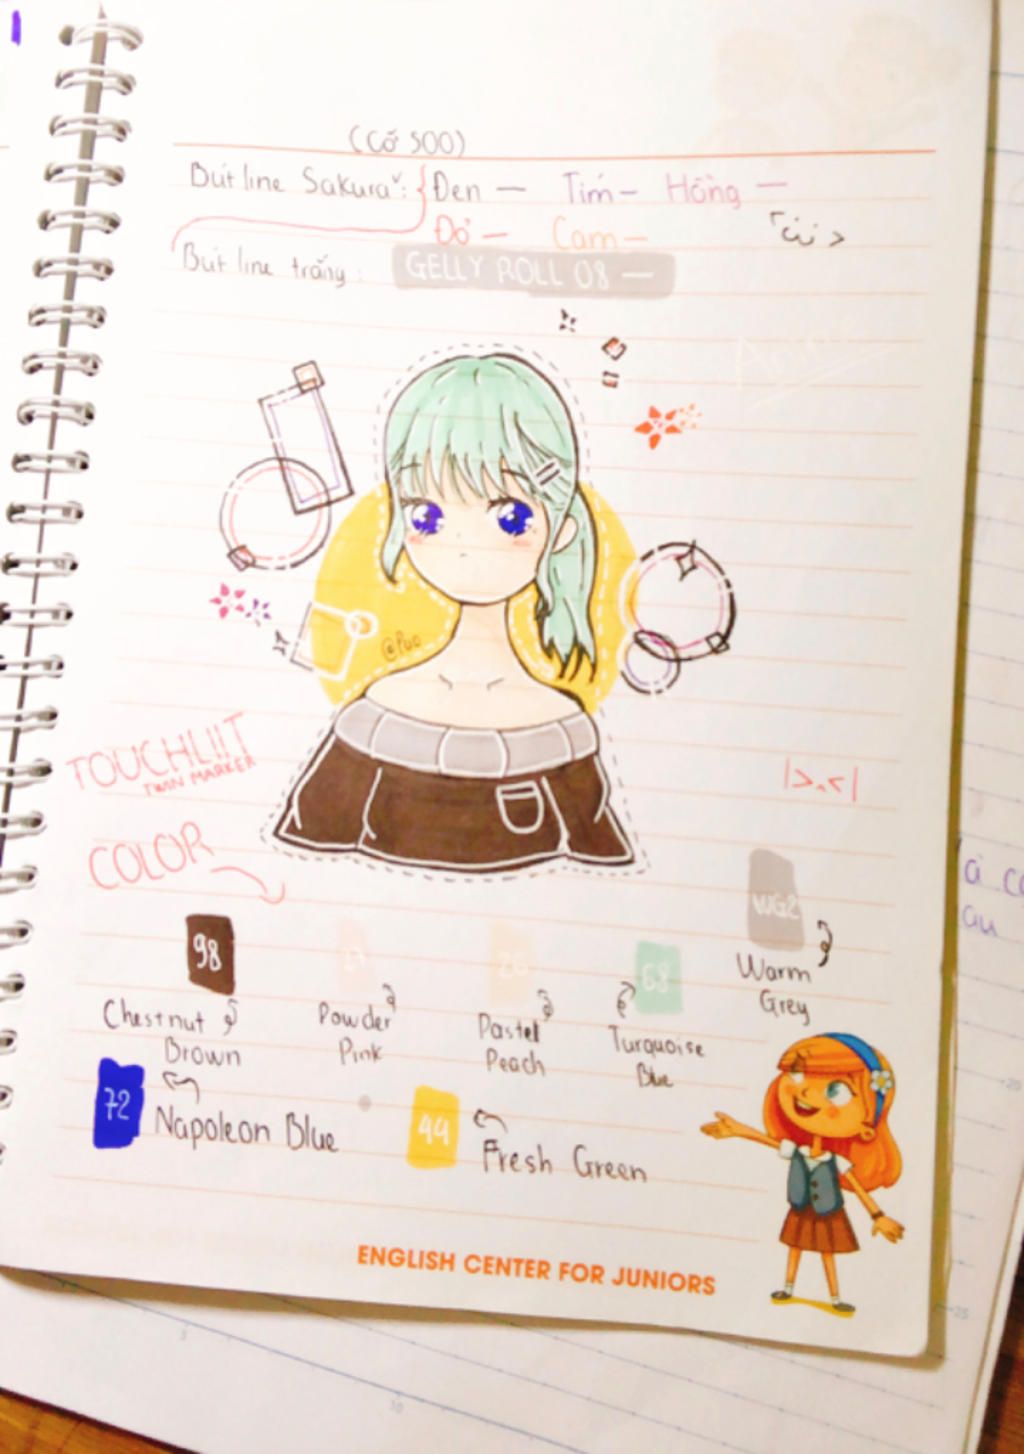 (Cỡ 500)
Bút line Sakura: { Đen — Tím — Hồng —
Đỏ — Cam —
Bút line trắng: GELLY ROLL 08 —
Anime
@Puo
TOUCHLIIT
TWIN MARKER
|>.<|
COLOR
WG2
Warm
Grey
98
Chestnut
Brown
Powder
Pink
26
Pastel
Peach
68
Turquoise
Blue
72
Napoleon Blue
44
Fresh Green
ENGLISH CENTER FOR JUNIORS